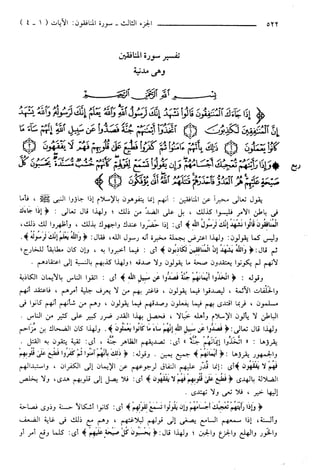 ٥٢٢ الجزء الثالث ـ سورة المنافقون: الآيات (١ ـ ٤)
تفسير سورة المنافقين
وهى مدنية
بسم الله الرحمن الرحيم
﴿ إِذَا جَاءَكَ الْمُنَافِقُونَ قَالُوا نَشْهَدُ إِنَّكَ لَرَسُولُ اللَّهِ وَاللَّهُ يَعْلَمُ إِنَّكَ لَرَسُولُهُ وَاللَّهُ يَشْهَدُ
إِنَّ الْمُنَافِقِينَ لَكَاذِبُونَ ۝ اتَّخَذُوا أَيْمَانَهُمْ جُنَّةً فَصَدُّوا عَنْ سَبِيلِ اللَّهِ إِنَّهُمْ سَاءَ مَا
كَانُوا يَعْمَلُونَ ۝ ذَلِكَ بِأَنَّهُمْ آمَنُوا ثُمَّ كَفَرُوا فَطُبِعَ عَلَى قُلُوبِهِمْ فَهُمْ لَا يَفْقَهُونَ ۝
ربع ﴿ وَإِذَا رَأَيْتَهُمْ تُعْجِبُكَ أَجْسَامُهُمْ وَإِنْ يَقُولُوا تَسْمَعْ لِقَوْلِهِمْ كَأَنَّهُمْ خُشُبٌ مُسَنَّدَةٌ يَحْسَبُونَ كُلَّ
صَيْحَةٍ عَلَيْهِمْ هُمُ الْعَدُوُّ فَاحْذَرْهُمْ قَاتَلَهُمُ اللَّهُ أَنَّى يُؤْفَكُونَ ۝ ﴾
يقول تعالى مخبراً عن المنافقين : أنهم إنما يتفوهون بالإسلام إذا جاؤوا النبى ﷺ ، فأما
فى باطن الأمر فليسوا كذلك ، بل على الضد من ذلك ؛ ولهذا قال تعالى : ﴿ إذا جاءك
المنافقون قالوا نشهد إنك لرسول الله ﴾ أى: إذا حضروا عندك واجهوك بذلك ، وأظهروا لك ذلك،
وليس كما يقولون: ولهذا اعترض بجملة مخبرة أنه رسول الله، فقال: ﴿ والله يعلم إنك لرسوله ﴾.
ثم قال: ﴿ والله يشهد إن المنافقين لكاذبون ﴾ أى : فيما أخبروا به ، وإن كان مطابقاً للخارج؛
لأنهم لم يكونوا يعتقدون صحة ما يقولون ولا صدقه ؛ولهذا كذبهم بالنسبة إلى اعتقادهم .
وقوله : ﴿ اتخذوا أيمانهم جنة فصدوا عن سبيل الله ﴾ أى : اتقوا الناس بالأيمان الكاذبة
والحلفات الآثمة ، ليصدقوا فيما يقولون ، فاغتر بهم من لا يعرف جلية أمرهم ، فاعتقد أنهم
مسلمون ، فربما اقتدى بهم فيما يفعلون وصدقهم فيما يقولون ، وهم من شأنهم أنهم كانوا فى
الباطن لا يألون الإسلام وأهله خبالا ، فحصل بهذا القدر ضرر كبير على كثير من الناس .
ولهذا قال تعالى : ﴿ فصدوا عن سبيل الله إنهم ساء ما كانوا يعملون ﴾. ولهذا كان الضحاك بن مزاحم
يقرؤها : « اتخذوا إيمانهم جنة » أى: تصديقهم الظاهر جنة ، أى: تقية يتقون به القتل .
والجمهور يقرؤها : ﴿ أيمانهم ﴾ جمع يمين . وقوله: ﴿ ذلك بأنهم آمنوا ثم كفروا فطبع على قلوبهم
فهم لا يفقهون ﴾ أى :إنما قدر عليهم النفاق لرجوعهم عن الإيمان إلى الكفران ، واستبدالهم
الضلالة بالهدى ﴿ فطبع على قلوبهم فهم لا يفقهون ﴾ أى: فلا يصل إلى قلوبهم هدى، ولا يخلص
إليها خير ، فلا تعى ولا تهتدى .
﴿ وإذا رأيتهم تعجبك أجسامهم وإن يقولوا تسمع لقولهم ﴾ أى: كانوا أشكالاً حسنة وذوى فصاحة
وألسنة، إذا سمعهم السامع يصغى إلى قولهم لبلاغتهم ، وهم مع ذلك فى غاية الضعف
والخور والهلع والجزع والجبن ؛ ولهذا قال: ﴿ يحسبون كل صيحة عليهم ﴾ أى: كلما وقع أمر أو